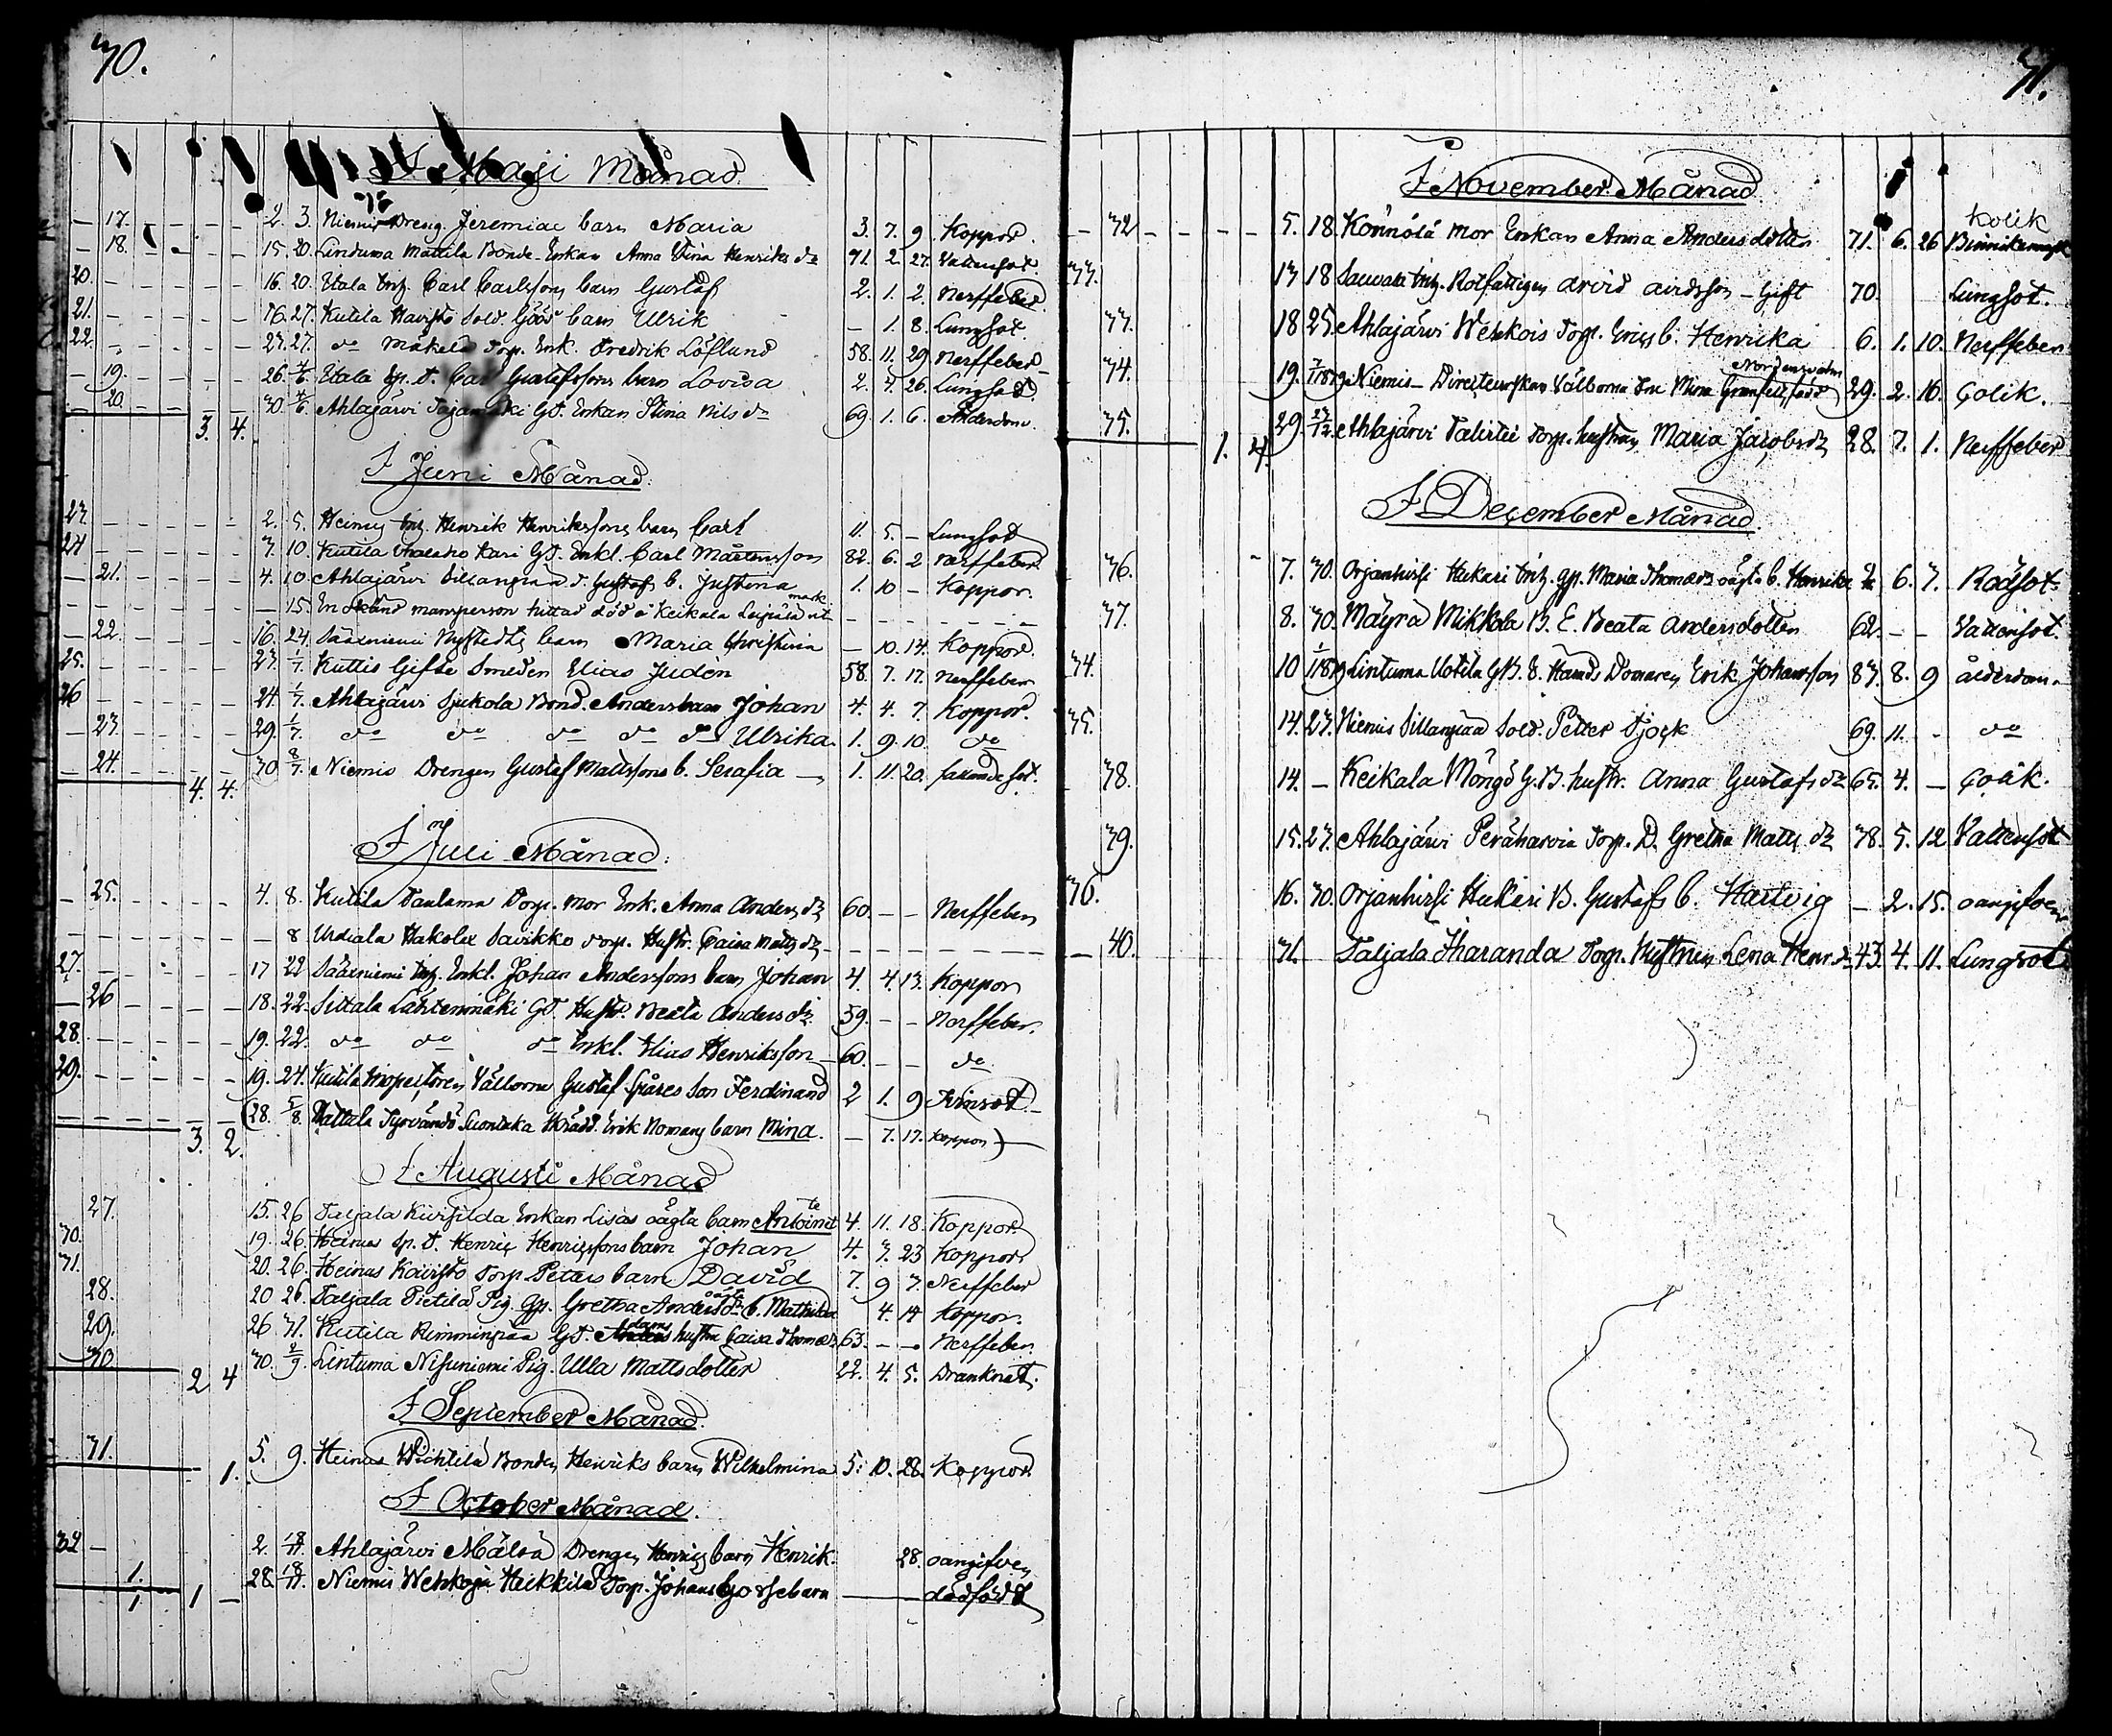 70.
I Maji Månad
17. 2. 3. Niemis Dreng. Jeremiae barn Maria 3. 7. 9. Koppor.
18. 15. 20. Linduma Mattila Bonde Enkan Anna Stina Henriks dr 71. 2. 27. Vattusot.
20. 16. 20. Utala Inh. Carl Carlssons barn Gustaf 2. 1. 2. Nerffeber.
21. 16. 27. Kutila Haristo Sold. Göös barn Ulrik — 1. 8. Lungsot.
22. 23. 27. do Mäkelä Torp. Enk. Fredrik Löflund 58. 11. 29. Nerffeber
19. 26. 2/6. Utala Sp. T. Carl Gustafssons barn Lovisa 2. 7. 26. Lungsot.
20. 30. 4/6. Ahlajärvi Tajamäki GT. Enkan Stina Nils dr 69. 1. 6. Ålderdom.
3. 4.
I Juni Månad.
23. 2. 5. Heinis Inh. Henrik Henrikssons barn Carl 11. 5. — Lungsot
24. 3. 10. Kutila Kari GT. Enkl. Carl Mårtensson 82. 6. 2 Nerffeber
21. 4. 10. Ahlajärvi Sillanpää T. Gustafs b. Justina 1. 10 — Koppor.
— 15. En okänd mansperson hittad död å Keikala mark
22. 16. 24. Sääxniemi Nystedts barn Maria Christina — 10. 14. Koppor.
25. 23. 1/7. Kuttis Gifte Smeden Elias Judén 58. 7. 17. Nerffeber
26. 24. 1/7. Ahlajärvi Sjukola Bond. Anders barn Johan 4. 4. 7. Koppor.
23. 29. 1/7. do do do do do Ulrika 1. 9. 10. do
24. 30. 8/7. Niemis Drengen Gustaf Mattssons b. Serafia 1. 11. 20. fallandesot.
4. 4.
I Juli Månad.
25. 4. 8. Kutila Taulama Torp. mor Enk. Anna Anders dr 60. — — Nerffeber
— 8 Urdiala Hakola Savikko Torp. Hustr. Caisa Matts dr
27. 17 22 Sääxniemi Inh. Enkl. Johan Anderssons barn Johan 4. 4. 13. Koppor
26 18. 22. Sittala Lähtenmäki GT. Hustr. Beata Anders dr. 59. — — Nerffeber.
28. 19. 22. do do do Enkl. Elias Henriksson 60. — — do.
29. 19. 24. Kutila Inspectoren Välborne Gustaf Spåres Son Ferdinand 2 1. 9 Trinsot.
(28. 5/8. Mattila Tyrvändö Suontaka Skrädd. Erik Nomans barn Mina. — 7. 17. Koppor)
3. 2.
I Augusti Månad
27. 15. 26 Taljala Kurjilda Enkan Lisas oägta barn Antoinette 4. 11. 18. Koppor
30. 19. 26. Heinus Sp. T. Henric Henricssons barn Johan 4. 3. 23 Koppor
31. 20. 26. Heinus Kaisto Torp. Peters barn David 7. 9 7. Nerffeber
28. 20 26. Taljala Pietilä Pig. Gp. Gretha Anders dr oägta b. Mathilda 4. 14 Koppor.
29. 26 31. Kutila Rimminpää GT. Adams hustru Caisa Thomæ dr 63. — — Nerffeber.
30. 30. 2/9. Lintuma Nisuniemi Pig. Ulla Mattsdotter 22. 4. 5. Dranknat.
2 4
I September Månad.
31. 5. 9. Heinus Wichtilä Bonden Henriks barn Wilhelmina 5. 10. 28. Koppor.
1.
I October Månad.
32 2. 18/11. Ahlajärvi Mälsä Drengen Henrics barn Henrik. 28. oangifven
1. 28. 18/11. Niemis Wehkoja Heikkilä Torp. Johans Gossebarn — dödfödt
1 1 —
71.
I November Månad
32 5. 18. Könnölä mor Enkan Anna Andersdotter 71. 6. 26 Kolik
33. 13 18 Sauvala Inh. Rotfattigen Arvid Arvidsson Gift 70. Lungsot.
33. 18 25. Ahlajärvi Wehkois Torp. Erics b. Henrika 6. 1. 10. Nerffeber
34. 19. Niemis Directeurskan Välborna Fru Mina Granfelt född Nordensvahn 29. 2. 16. Colik.
35. 29. 23/12. Ahlajärvi Talirtie Torp. hustrun Maria Jacobs dr 28. 7. 1. Nerffeber
1. 4.
I December Månad.
36. 7. 30. Orjanhirsi Hukari Inh. gp. Maria Thomæ dr oägta b. Henrika 6. 7. Rödsot.
37. 8. 30. Mäyrä Mikkola B. E. Beata Andersdotter 62. — — Vattusot.
34. 10 Lintuma Uotila GB. F. Hands Domaren Erik Johansson 83. 8. 9 ålderdom.
35. 14. 23. Niemis Sillanpää Sold. Petter Tjock 69. 11. — do
38. 14. — Keikala Möngö G.B. hustr. Anna Gustafs dr 65. 4. — Colik.
39. 15. 23. Ahlajärvi Peräharvia Torp. D. Gretha Matts dr 38. 5. 12 Vattusot
36. 16. 30. Orjanhirsi Huckari B. Gustafs b. Hartvig — 2. 15. oangifven
40. 31. Taljala Iharanda Torp. Hustrun Lena Henr. dr 43. 4. 11. Lungsot